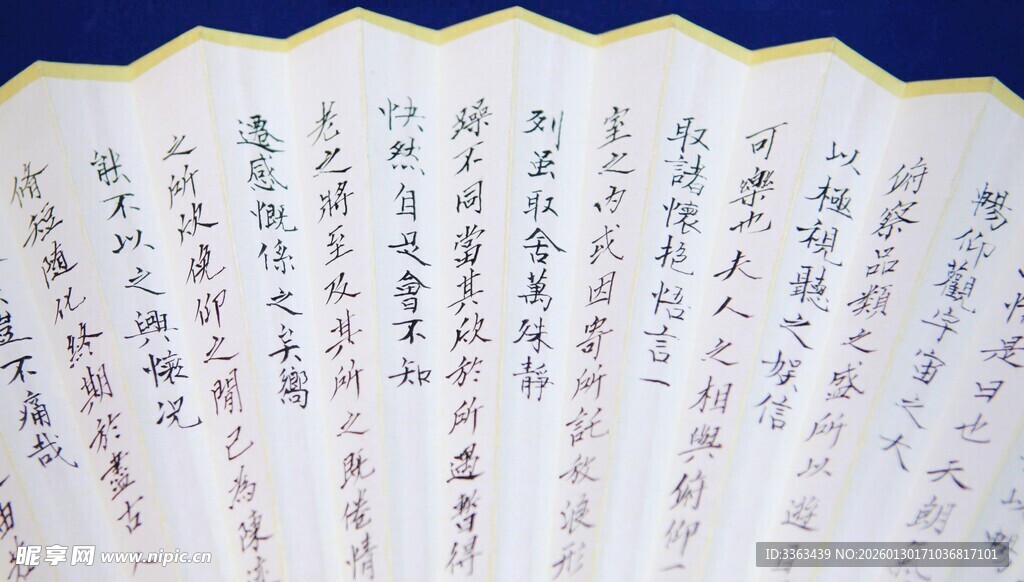 以暢
情是日也天朗氣
暢仰觀宇宙之大
俯察品類之盛所以遊
以極視聽之娱信
可樂也夫人之相與俯仰一
取諸懷抱悟言一
室之内或因寄所託放浪形
列虽取舍萬殊靜
躁不同當其欣於所遇暫得
快然自足曾不知
老之將至及其所之既倦情
遷感慨係之矣嚮
之所欣俛仰之閒已為陳
能不以之興懷况
脩短随化終期於盡古
豈不痛哉
由
昵享网 www.nipic.cn
ID:3363439 NO:20260130171036817101